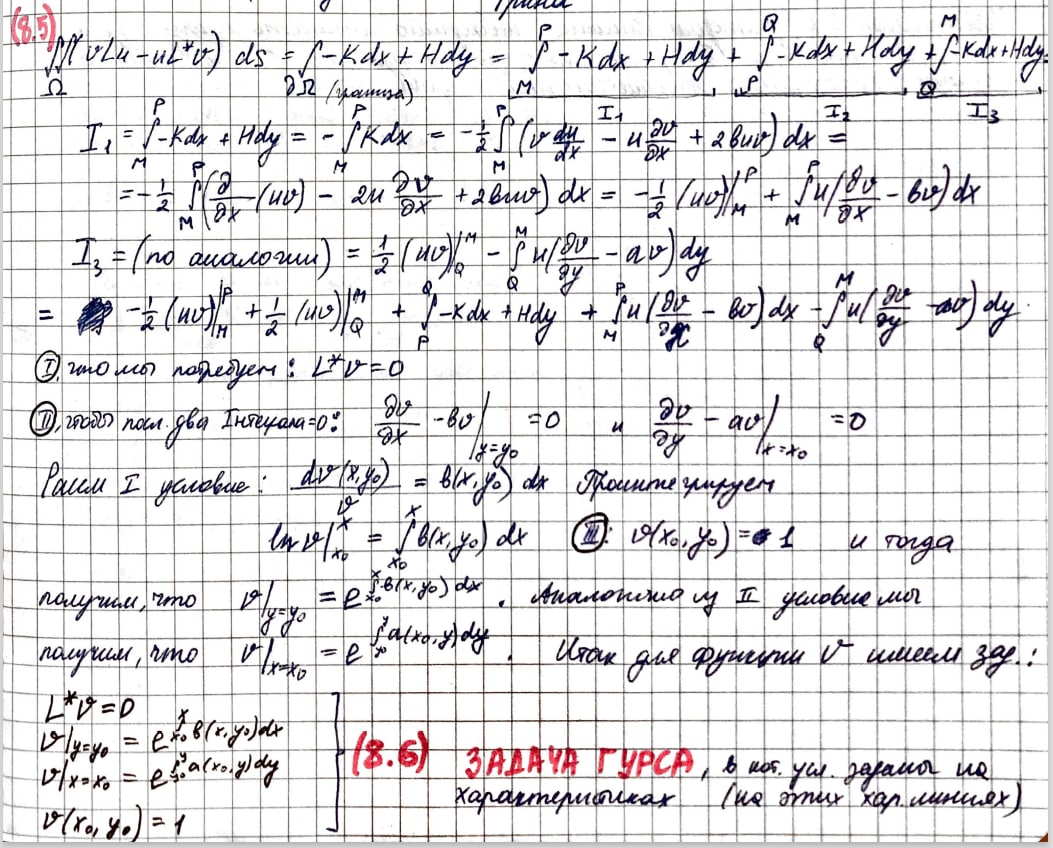 Грина
(8.5) ∬_Ω (vLu − uL*v) ds = ∫_{∂Ω (граница)} −Kdx + Hdy = ∫_M^P −Kdx + Hdy + ∫_P^Q −Kdx + Hdy + ∫_Q^M −Kdx + Hdy =
I₁ I₂ I₃
I₁ = ∫_M^P −Kdx + Hdy = −∫_M^P Kdx = −½ ∫_M^P (v du/dx − u ∂v/∂x + 2buv) dx =
= −½ ∫_M^P (∂/∂x (uv) − 2u ∂v/∂x + 2buv) dx = −½ (uv)|_M^P + ∫_M^P u(∂v/∂x − bv) dx
I₃ = (по аналогии) = ½ (uv)|_Q^M − ∫_Q^M u(∂v/∂y − av) dy
= −½ (uv)|_M^P + ½ (uv)|_Q^M + ∫_P^Q −Kdx + Hdy + ∫_M^P u(∂v/∂x − bv) dx − ∫_Q^M u(∂v/∂y − av) dy.
Ⅰ. что мы потребуем: L*v = 0
Ⅱ. чтобы посл. два Iнтеграла=0: ∂v/∂x − bv|_{y=y₀} = 0 и ∂v/∂y − av|_{x=x₀} = 0
Рассм I условие: dv(x,y₀)/v = b(x,y₀) dx Проинтегрируем
ln v|_{x₀}^x = ∫_{x₀}^x b(x,y₀) dx Ⅲ: v(x₀,y₀) = 1 и тогда
получим, что v|_{y=y₀} = e^{∫_{x₀}^x b(x,y₀) dx}. Аналогично из II условие мы
получим, что v|_{x=x₀} = e^{∫_{y₀}^y a(x₀,y) dy}. Итак для функции v имеем зад.:
L*v = 0
v|_{y=y₀} = e^{∫_{x₀}^x b(x,y₀) dx}
v|_{x=x₀} = e^{∫_{y₀}^y a(x₀,y) dy}
v(x₀,y₀) = 1
(8.6) ЗАДАЧА ГУРСА, в кот. усл. заданы на
характеристиках (на этих хар. линиях)